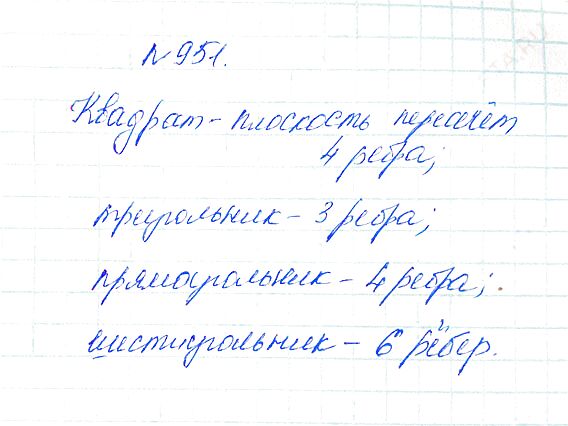 №951.
Квадрат - плоскость пересечёт
4 ребра;
треугольник - 3 ребра;
прямоугольник - 4 ребра;
шестиугольник - 6 рёбер.